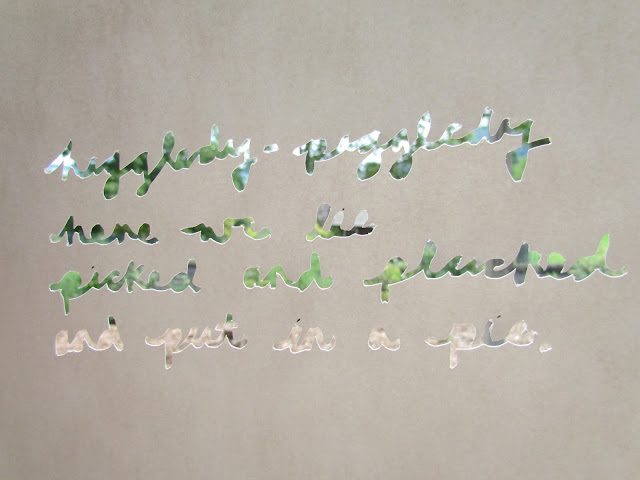 higgledy-piggledy
here we lie
picked and plucked
and put in a pie.